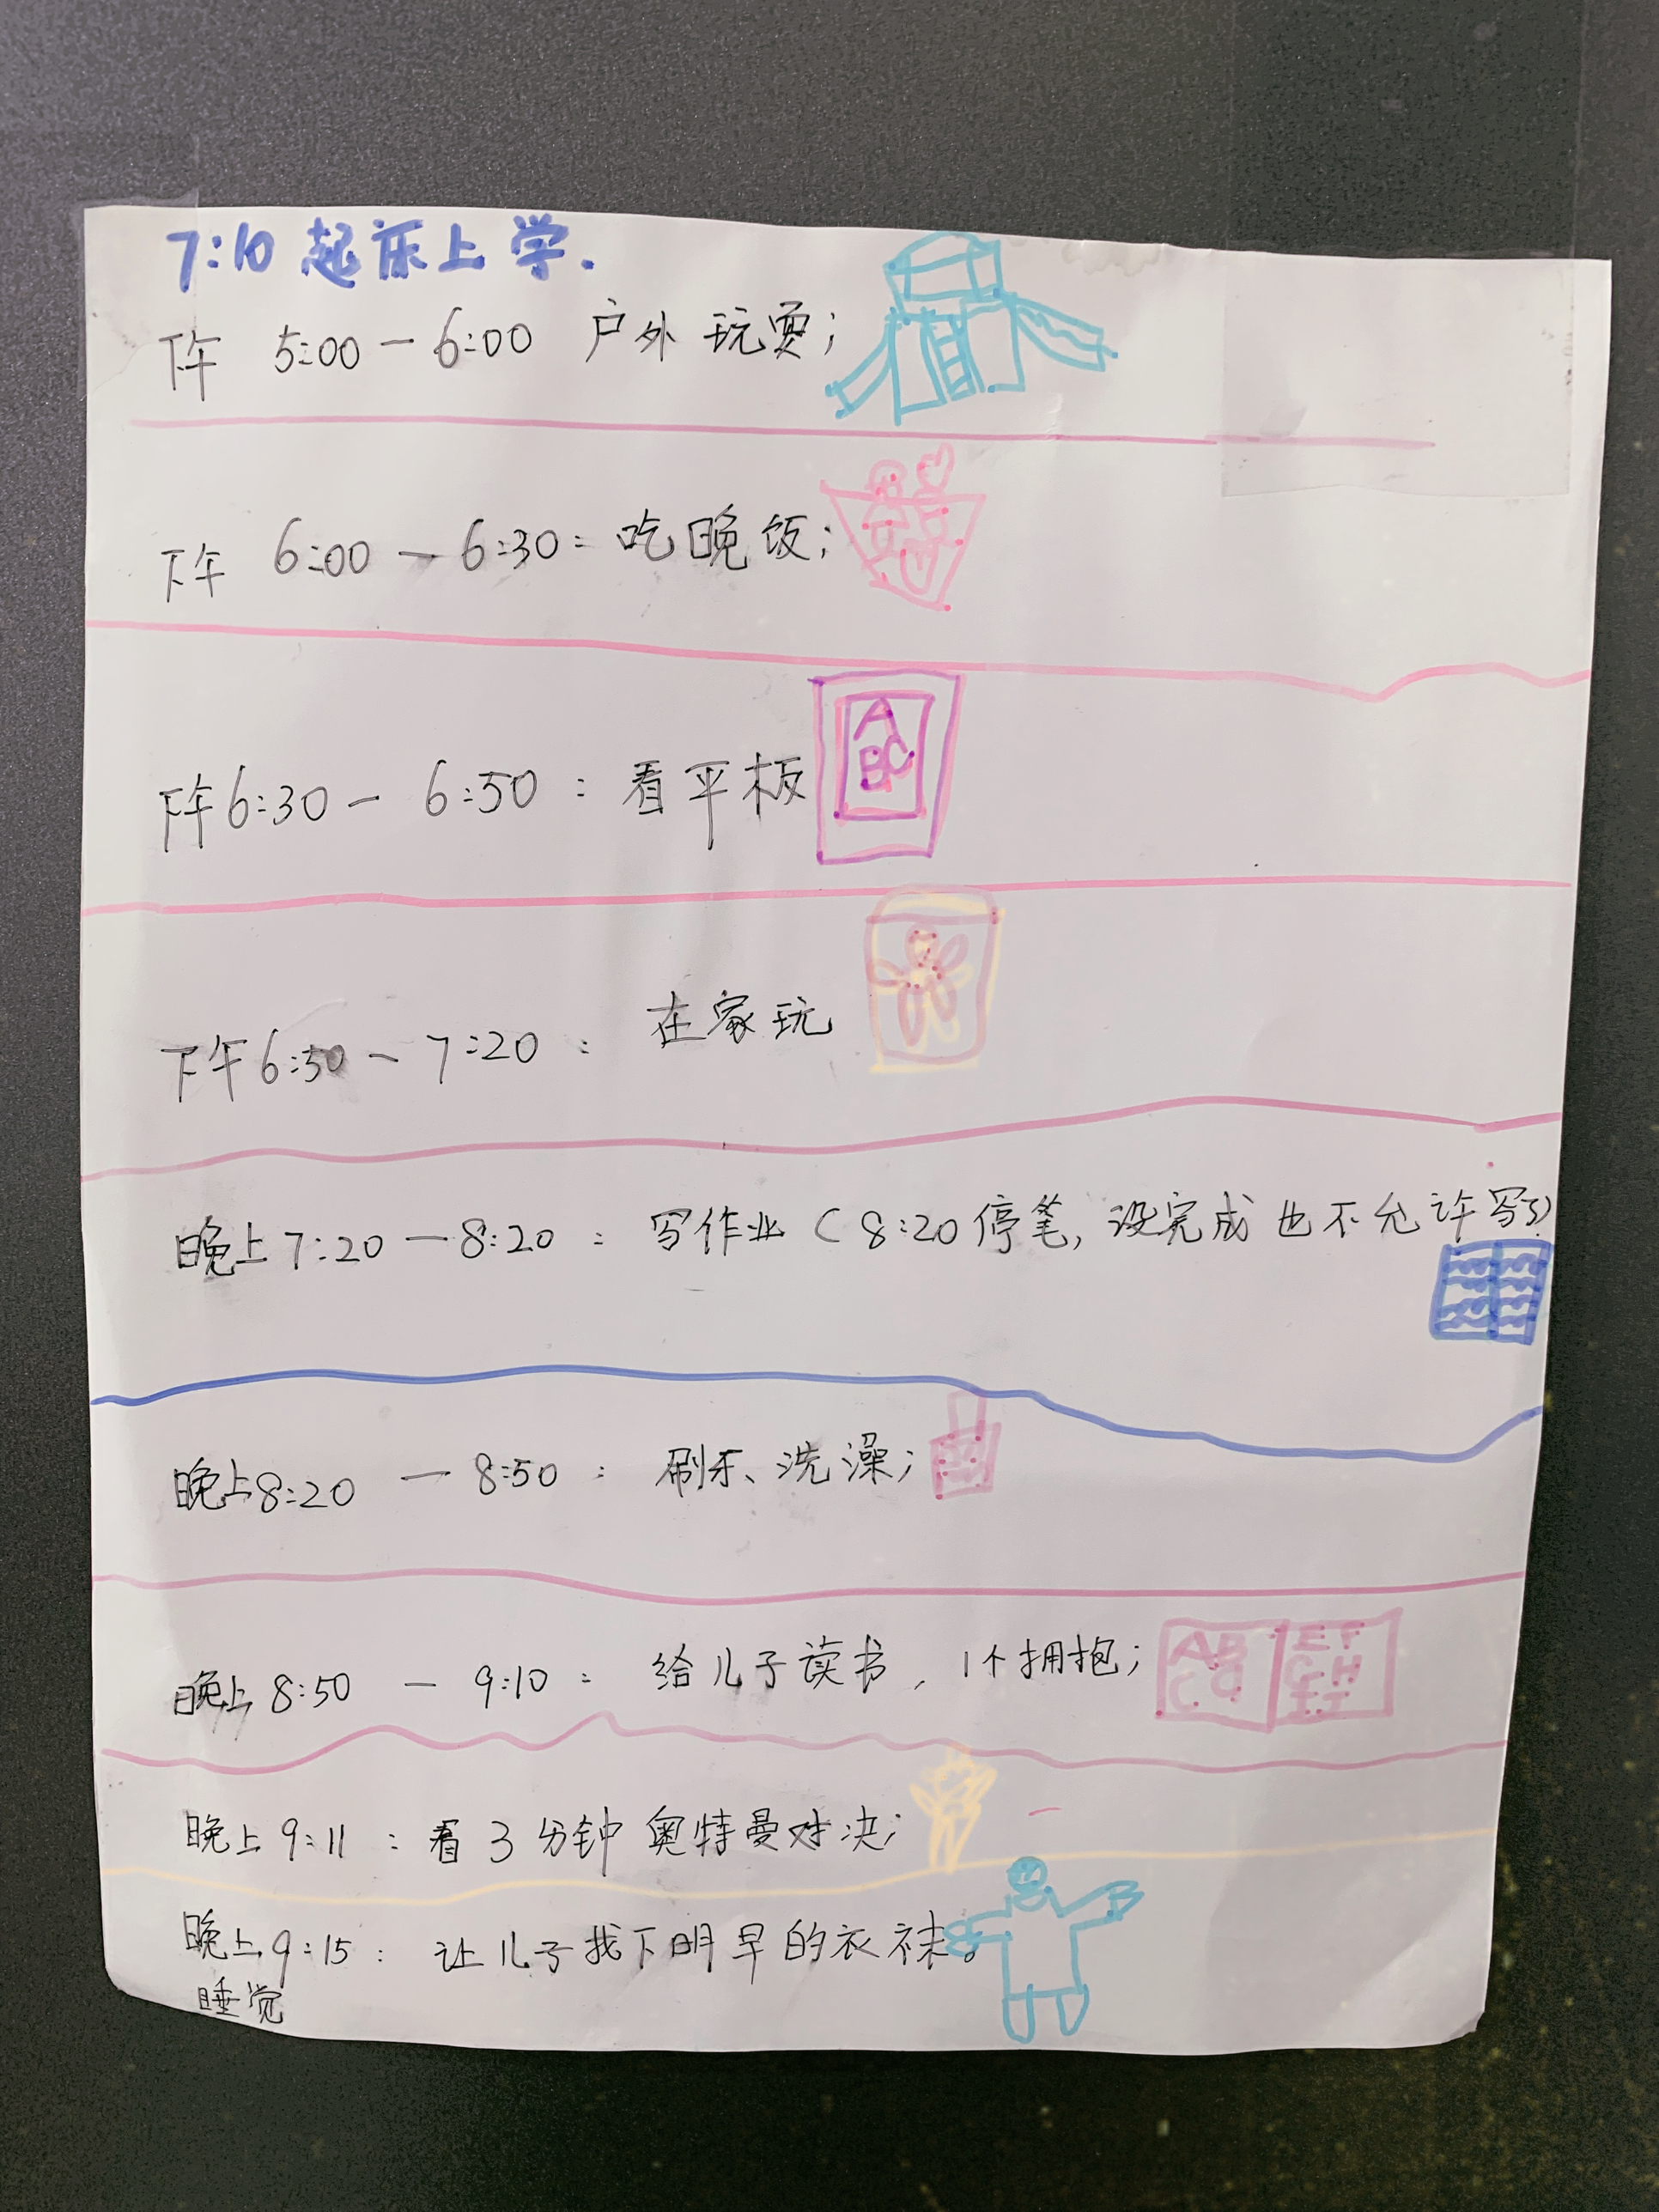 7:10 起床上学.
下午 5:00 — 6:00 户外玩耍;
下午 6:00 — 6:30: 吃晚饭;
A
BC
下午6:30 — 6:50: 看平板
下午6:50 — 7:20: 在家玩
晚上7:20 — 8:20: 写作业(8:20停笔,没完成也不允许写了)
晚上8:20 — 8:50: 刷牙、洗澡;
晚上8:50 — 9:10: 给儿子读书, 1个拥抱;
AB EF
CD GH
IJ
晚上9:11: 看3分钟奥特曼对决;
晚上9:15: 让儿子找下明早的衣袜。
睡觉